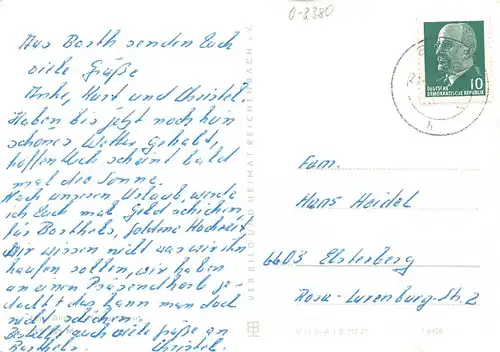 0-2380
Aus Barth senden Euch
viele Grüße
Anke, Kurt und Christel.
Haben bis jetzt noch kein
schönes Wetter gehabt,
hoffen Euch scheint bald
mal die Sonne.
Nach unseren Urlaub, werde
ich Euch mal Geld schicken,
für Barthels, goldene Hochzeit
Wir wissen nicht was wir ihn
kaufen sollen, wir haben
an einen Präsendkorb ge-
dacht, das kann man doch
nicht schicken.
Bestellt auch viele Grüße an
Barthels. Christel.
VEB BILD UND HEIMAT REICHENBACH I. V.
DEUTSCHE
DEMOKRATISCHE REPUBLIK
10
Fam.
Hans Heidel
6603 Elsterberg
Rosa-Luxenburg-Str. 2